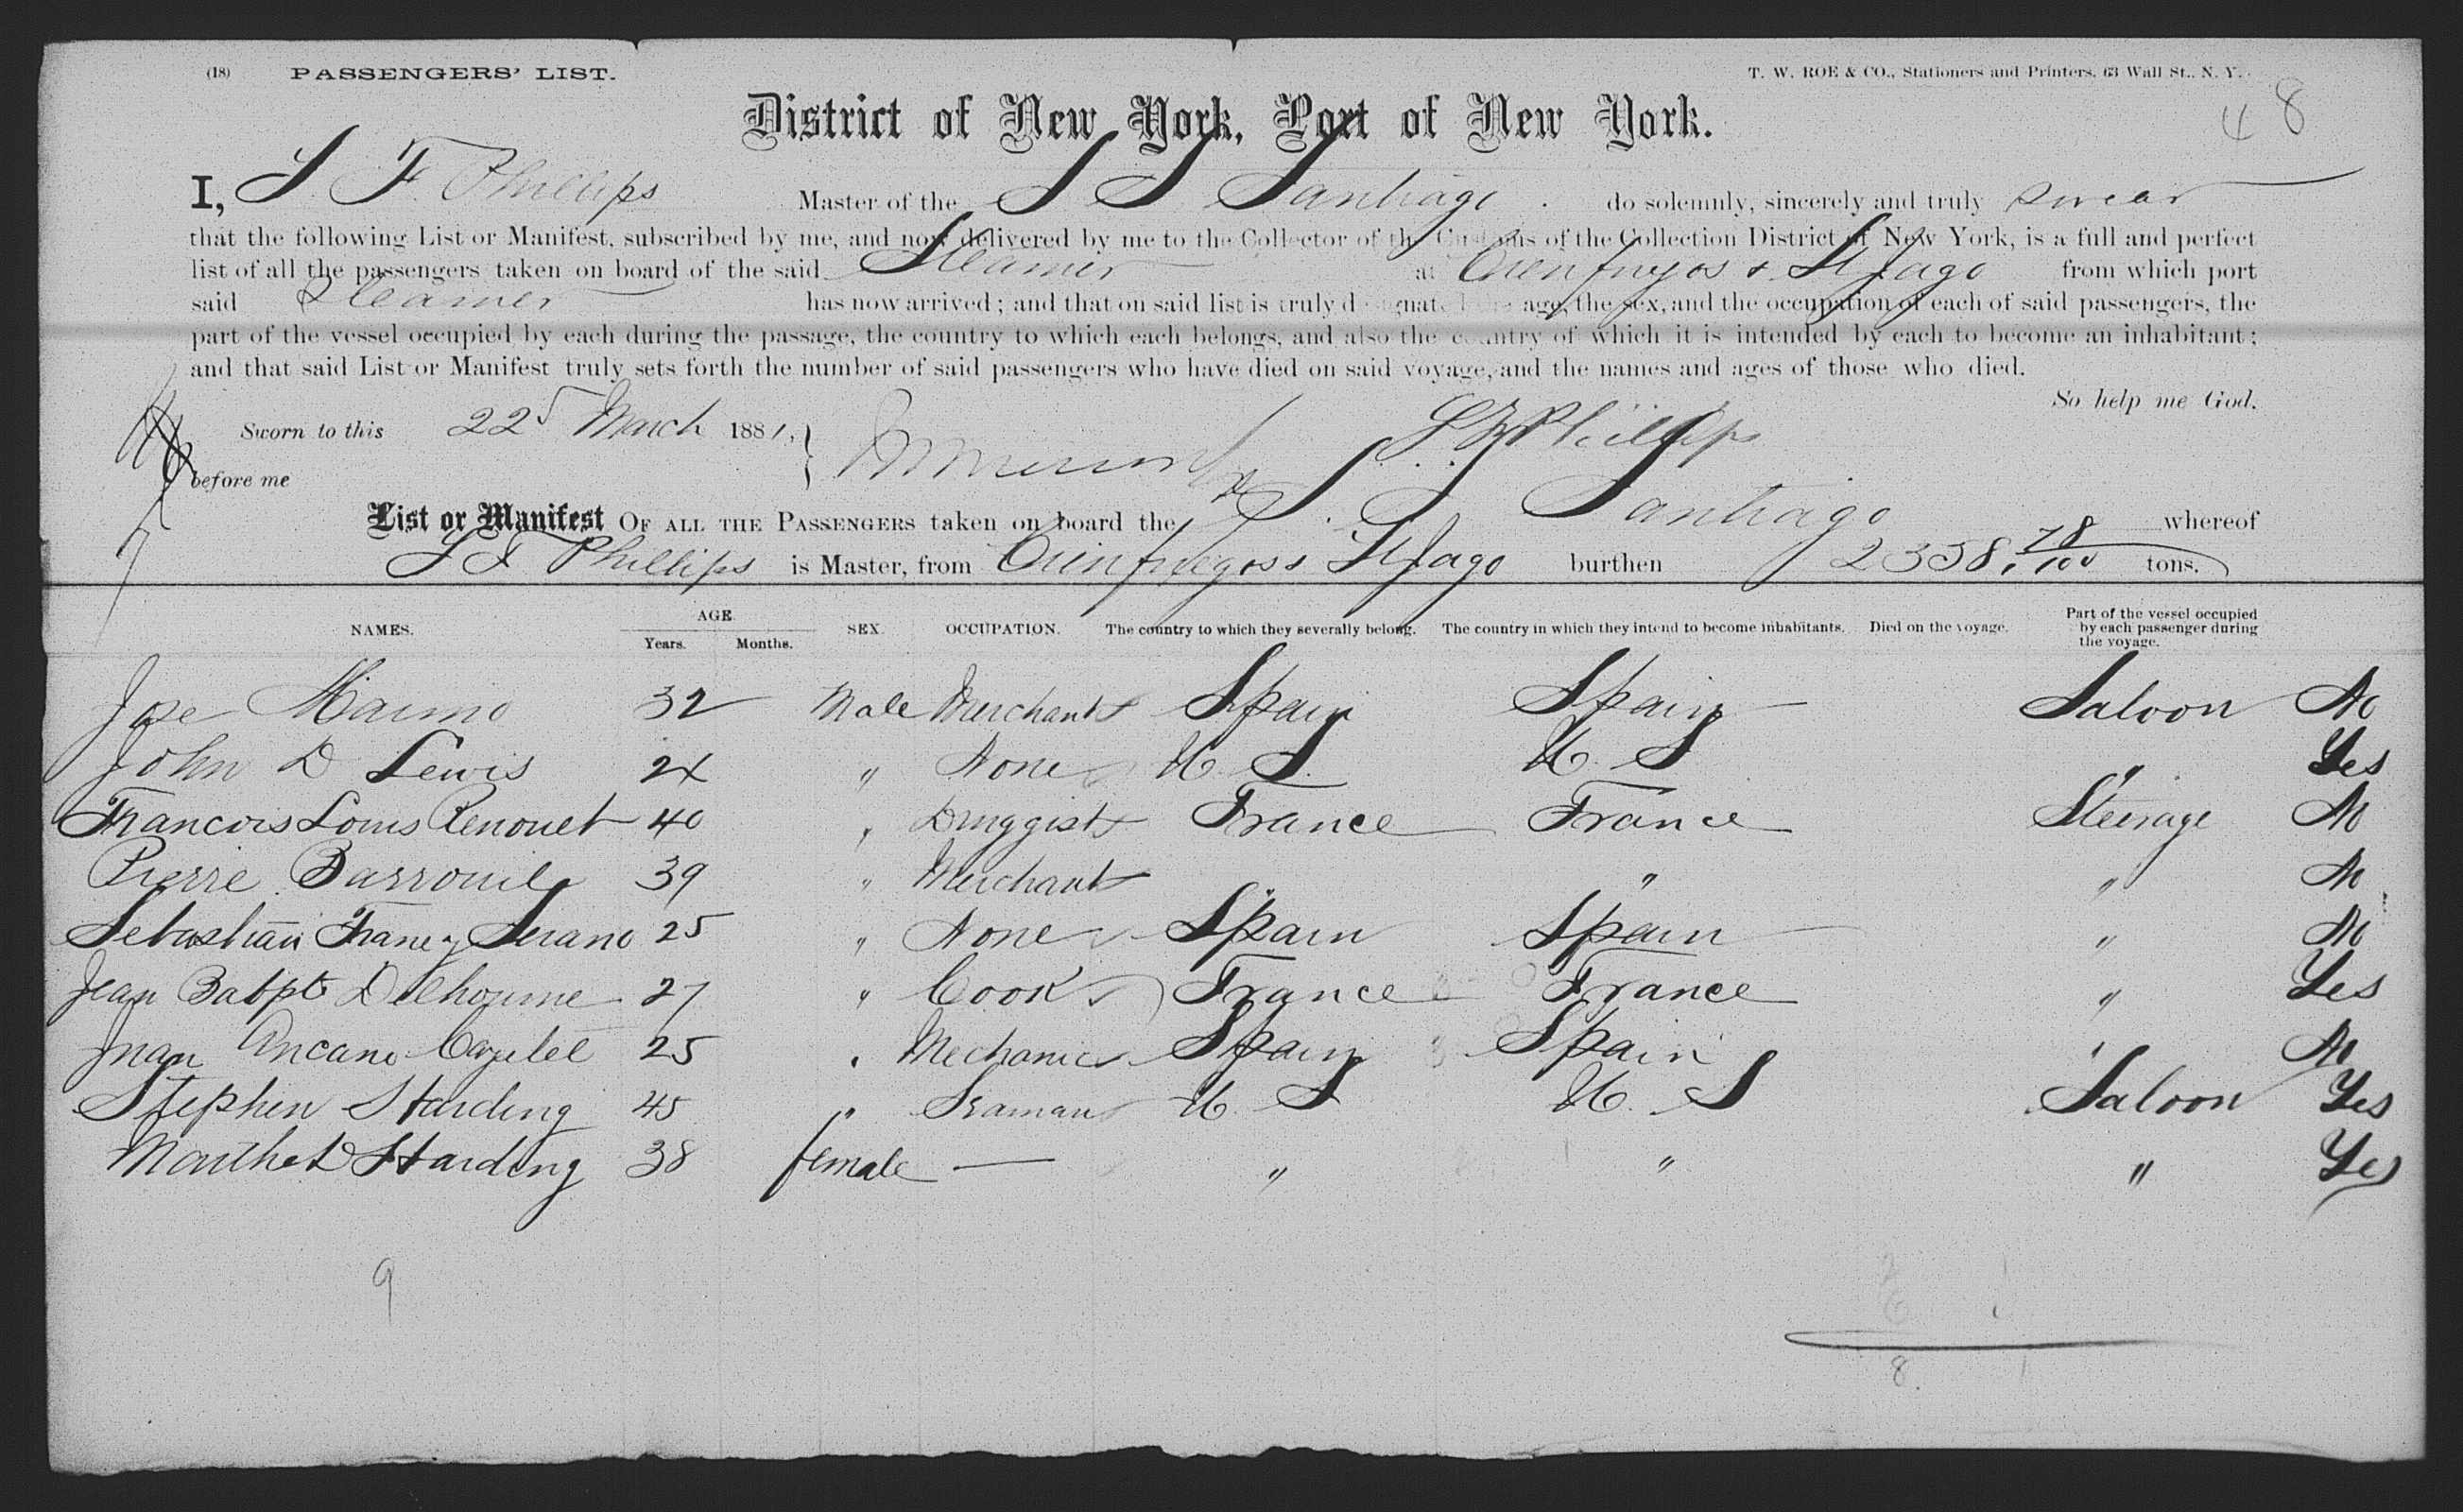 (18) PASSENGERS' LIST. T. W. ROE & CO., Stationers and Printers, 63 Wall St., N. Y.
48
District of New York, Port of New York.
I, S F Phillips Master of the S S Santiago do solemnly, sincerely and truly swear
that the following List or Manifest, subscribed by me, and now delivered by me to the Collector of the Customs of the Collection District of New York, is a full and perfect
list of all the passengers taken on board of the said Steamer at Cienfuegos & St Jago from which port
said Steamer has now arrived; and that on said list is truly designated the age, the sex, and the occupation of each of said passengers, the
part of the vessel occupied by each during the passage, the country to which each belongs, and also the country of which it is intended by each to become an inhabitant;
and that said List or Manifest truly sets forth the number of said passengers who have died on said voyage, and the names and ages of those who died.
So help me God.
Sworn to this 22d March 1881, S F Phillips
before me
List or Manifest OF ALL THE PASSENGERS taken on board the S. S. Santiago whereof
S F Phillips is Master, from Cienfuegos & St Jago burthen 2358 78/100 tons.
NAMES. AGE Years. Months. SEX. OCCUPATION. The country to which they severally belong. The country in which they intend to become inhabitants. Died on the voyage. Part of the vessel occupied by each passenger during the voyage.
Jose 32 Male Merchant Spain Spain Saloon No
John D Lewis 24 " None U. S. U. S " Yes
Francois Louis Renouet 40 " Druggist France France Steerage No
Pierre Barrouil 39 " Merchant " " " No
Sebastian Serano 25 " None Spain Spain " No
Jean Babpt Delhoume 27 " Cook France France " Yes
Juan 25 " Mechanic Spain Spain " No
Stephen Harding 45 " Seaman U. S U. S Saloon Yes
Harding 38 female — " " " Yes
9
8 1